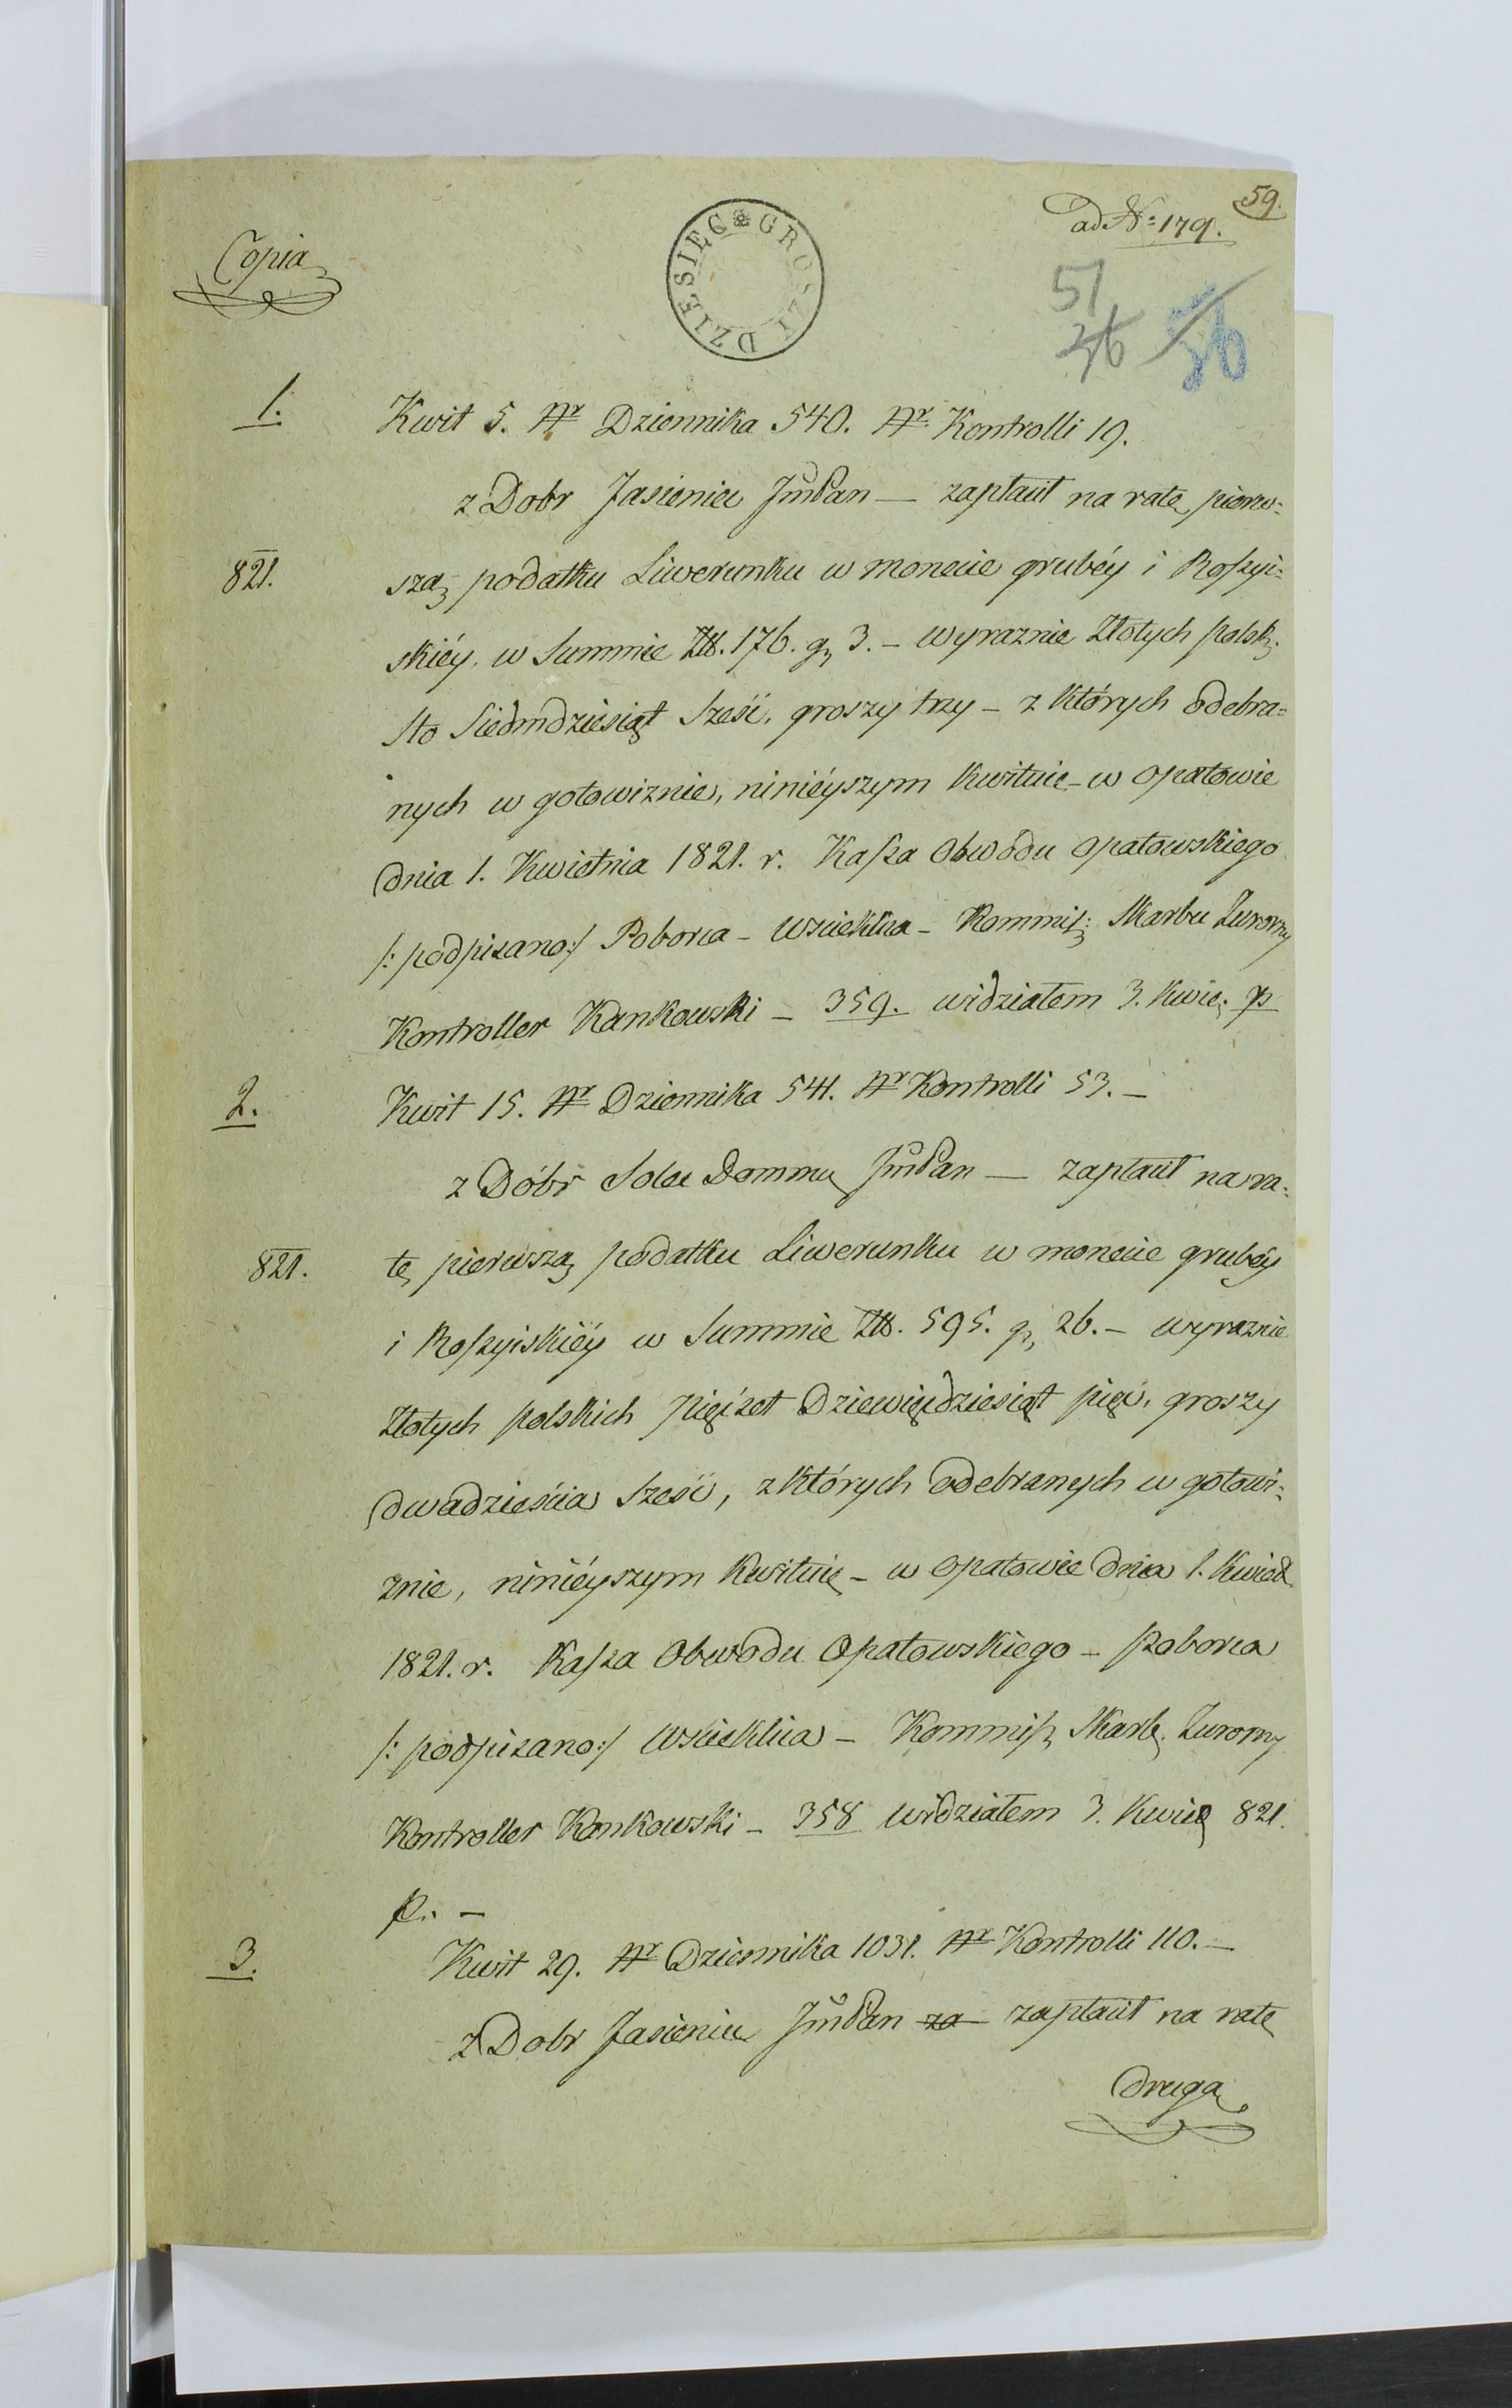 59.
ad Nº 179.
Copia
DZIESIĘC GROSZY
51
36 56
1. Kwit 5. Nr Dziennika 540. Nr Kontrolli 19.
z Dobr Jasienice JmPan — zapłacił na ratę pierw:
821. szą podatku Liwerunku w monecie grubéy i Roszyi:
skiéy, w Summie Zł. 176. g, 3. – wyraznie Złotych polsk:
Sto Siedmdziesiąt Sześć, groszy trzy – z których odebra=
nych w gotowiznie, niniéyszym kwituie – w Opatowie
dnia 1. Kwietnia 1821. r. Kassa Obwodu Opatowskiego
/: podpisano :/ Poborca – Wscieklica – Kommiss: Skarbu Zurorny
Kontroller Kankowski – 359. widziałem 3. Kwie: p
2. Kwit 15. Nr Dziennika 541. Nr Kontrolli 53. –
z Dóbr Solec Dommu JmPan — zapłacił na ra:
821. tę pierwszą podatku Liwerunku w monecie grubéy
i Roszyiskiéy w Summie Zł. 595. g, 26. – wyraznie
Złotych polskich pięćset Dziewięćdziesiąt pięć, groszy
dwadzieścia Sześć, z których odebranych w gotowi:
znie, niniéyszym kwituię – w Opatowie dnia 1. Kwiet
1821. r. Kassa Obwodu Opatowskiego – Poborca
/: podpisano :/ Wscieklica – Kommiss, Skarb. Zurorny
Kontroller Kankowski – 358 widziałem 3. Kwie 821.
p. –
3. Kwit 29. Nr Dziennika 1031. Nr Kontrolli 110. –
z Dobr Jasienice JmPan za zapłacił na ratę
drugą